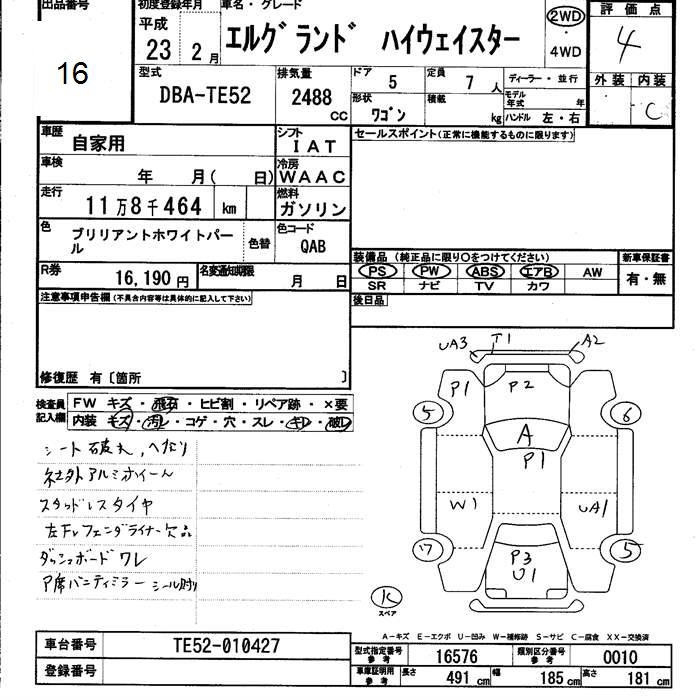 出品番号
16
初度登録年月
平成
23 2 月
車名・グレード
エルグランド ハイウェイスター
2WD
・
4WD
評価点
4
型式
DBA-TE52
排気量
2488
CC
ドア
5
定員
7 人
ディーラー・並行
外装 内装
C
形状
ワゴン
積載
kg
モデル年式 年
ハンドル 左・右
車歴
自家用
シフト
IAT
セールスポイント(正常に機能するものに限ります)
車検
年 月( 日)
冷房
WAAC
走行
11万8千464 km
燃料
ガソリン
色
ブリリアントホワイトパール
色替
色コード
QAB
R券
16,190円
名変通知期限
月 日
装備品 (純正品に限り○をつけてください)
PS PW ABS エアB AW
SR ナビ TV カワ
新車保証書
有・無
後日品
注意事項申告欄(不具合内容等は具体的に記入して下さい)
修復歴 有〔箇所 〕
検査員記入欄
FW キズ・飛石・ヒビ割・リペア跡・×要
内装 キズ・汚レ・コゲ・穴・スレ・キレ・破レ
シート破れ、へたり
社外アルミホイール
スタッドレスタイヤ
左Frフェンダライナー欠品
ダッシュボードワレ
P席バニティミラー シール剥
UA3
T1
A2
P1
P2
5
6
A
P1
W1
UA1
ワ
5
P3
U1
K
スペア
A-キズ E-エクボ U-凹み W-補修跡 S-サビ C-腐食 XX-交換済
車台番号
TE52-010427
登録番号
型式指定番号
参考
16576
類別区分番号
参考
0010
車庫証明用
参考
長さ
491 cm
幅
185 cm
高さ
181 cm